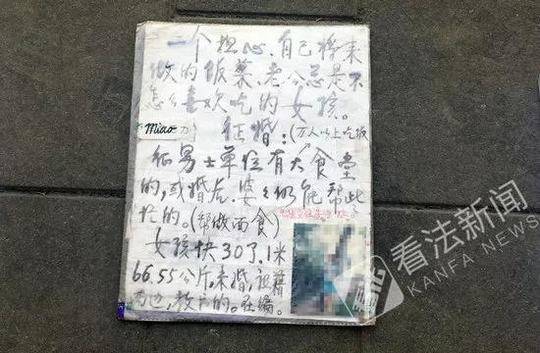 一个担心.自己将来
做的饭菜.老公总是不
怎么喜欢吃的女孩。
Miao
征婚:(万人以上吃饭
征男士单位有大食堂
的,或婚后.婆婆仍能帮此
忙的。(帮做面食)
女孩快30了.1米
66.55公斤,未婚,祖籍
教户的。在编。
看法新闻
KANFA NEWS